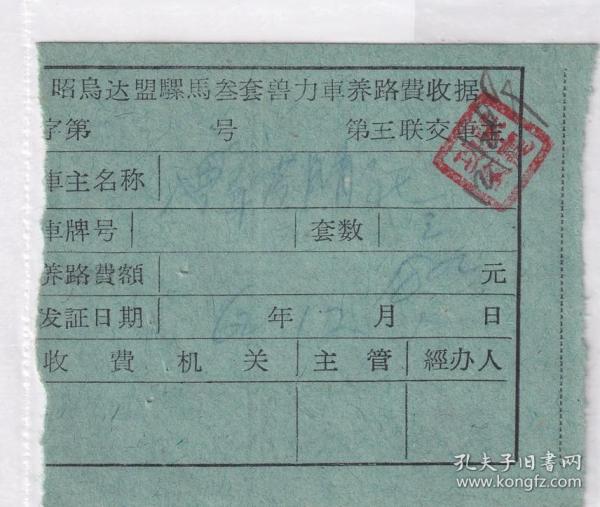 昭烏达盟騾馬叁套兽力車养路費收据
字第 号 第三联交車主
車主名称
車牌号 套数 三
养路費額 元
发証日期 62 年 12 月 日
收費机关 主管 經办人
孔夫子旧书网
www.kongfz.com